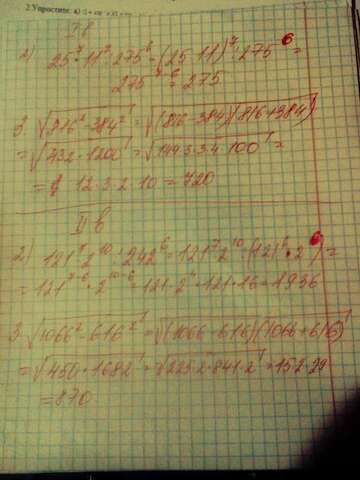 2. Упростите:
I в
2) 25⁷ · 11⁷ : 275⁶ = (25 · 11)⁷ : 275⁶ =
275⁷⁻⁶ = 275
3. √816² - 384² = √(816 - 384)(816 + 384)
= √432 · 1200 = √144 · 3 · 3 · 4 · 100 =
= 12 · 3 · 2 · 10 = 720
II в
2) 121⁷ · 2¹⁰ : 242⁶ = 121⁷ · 2¹⁰ : (121⁶ · 2⁶) =
= 121⁷⁻⁶ · 2¹⁰⁻⁶ = 121 · 2⁴ = 121 · 16 = 1936
3. √1066² - 616² = √(1066 - 616)(1066 + 616)
= √450 · 1682 = √225 · 2 · 841 · 2 = 15 · 2 · 29
= 870